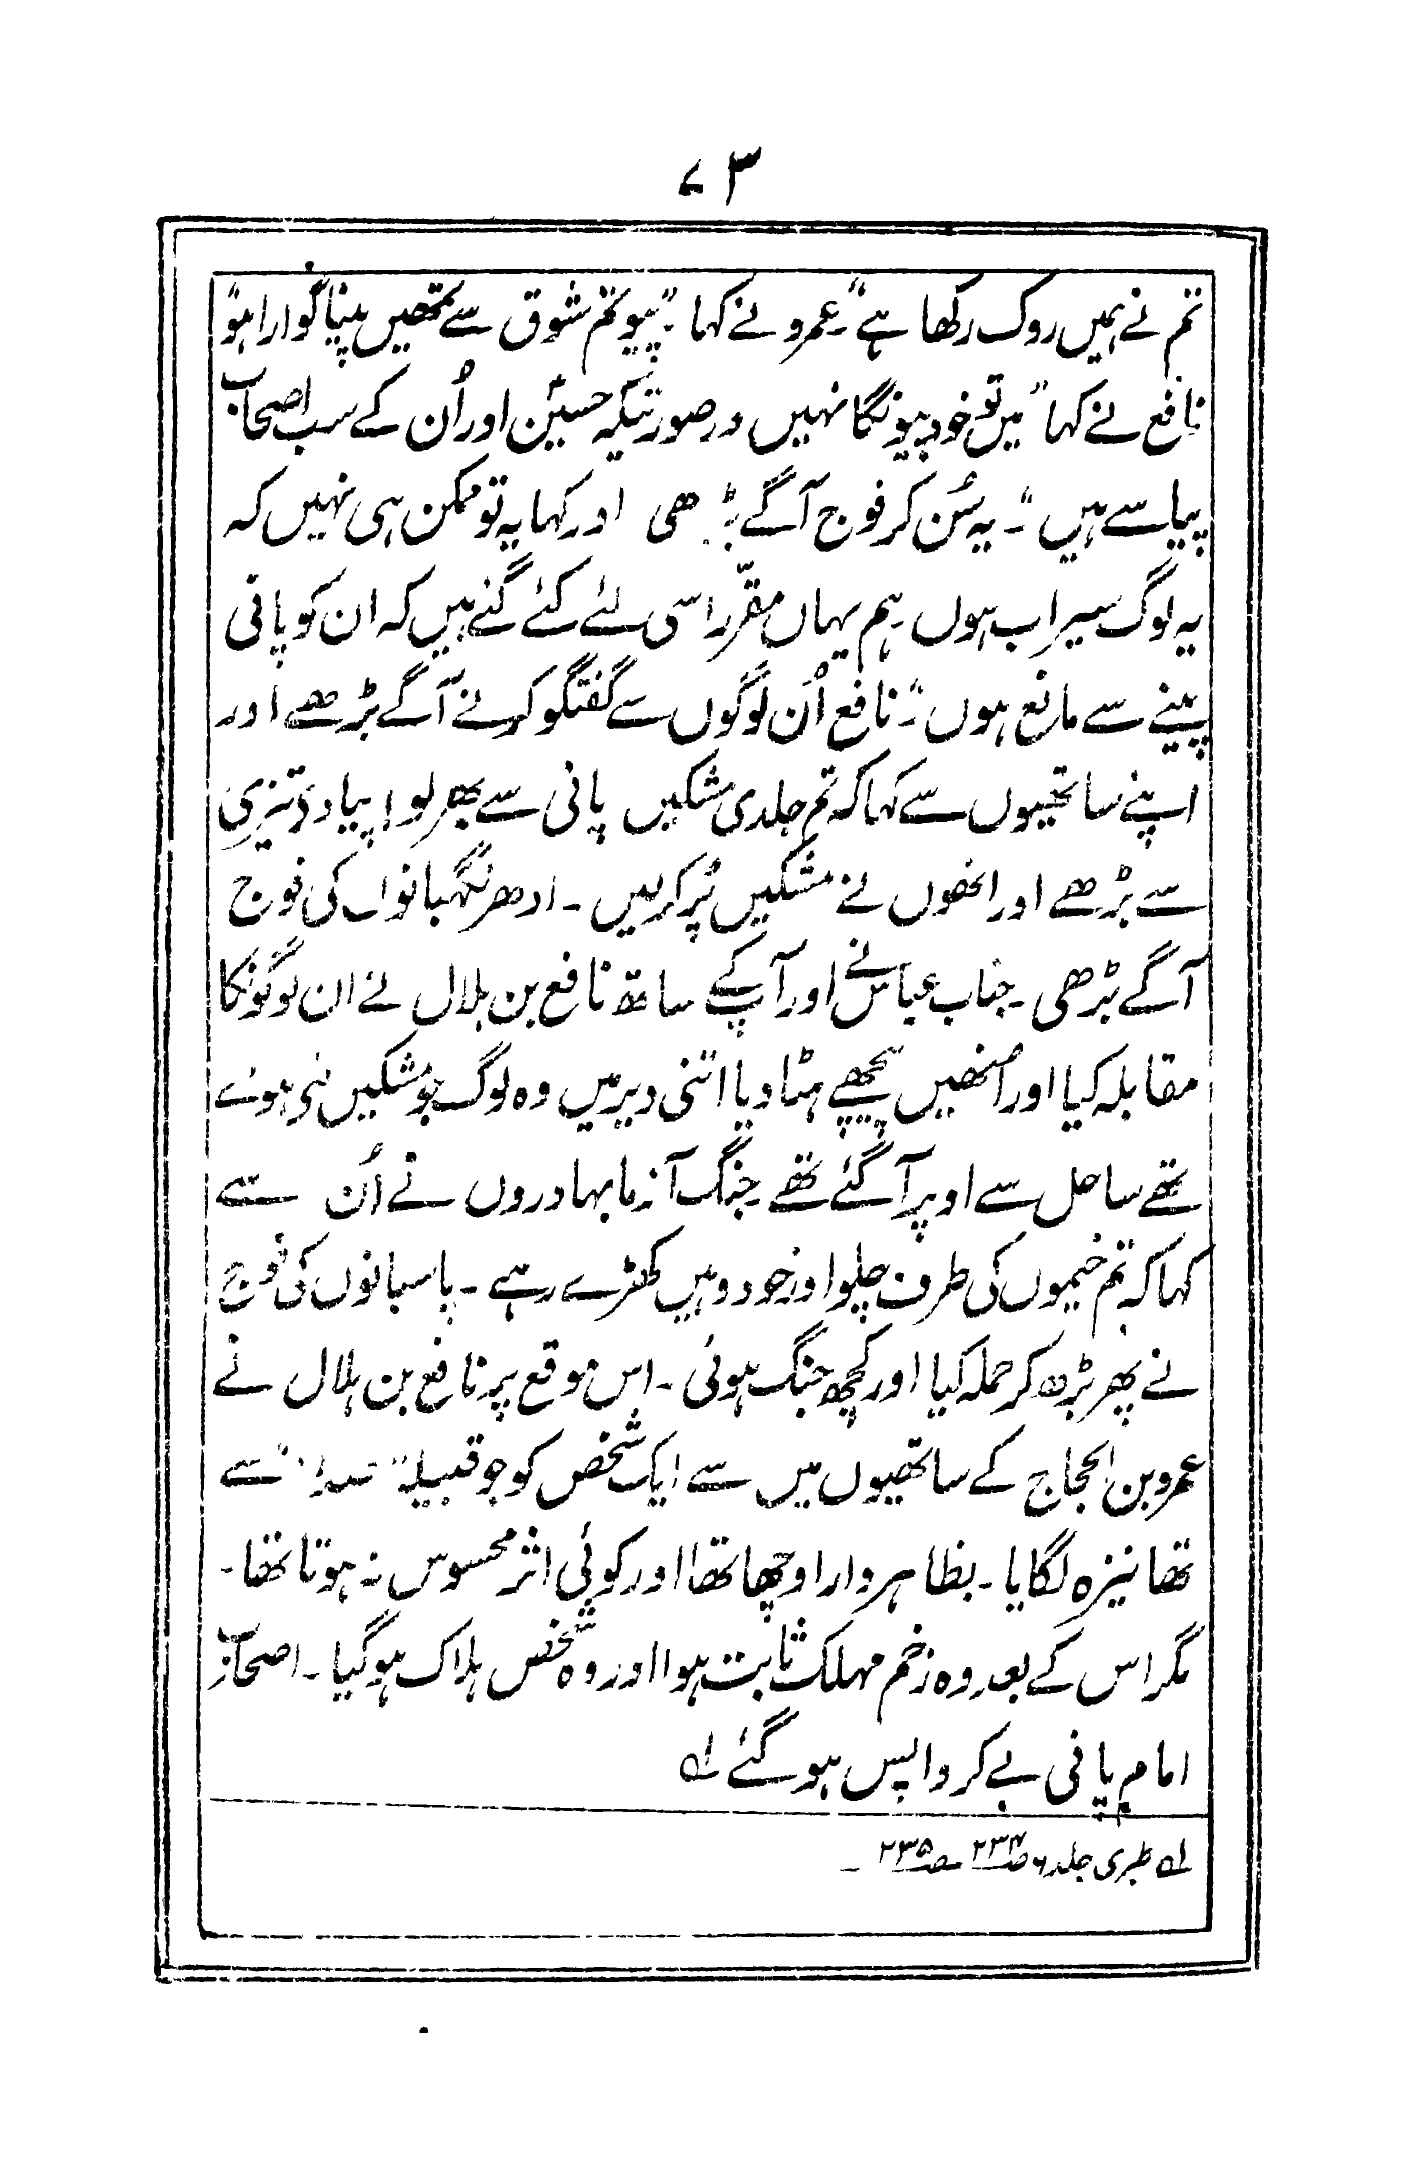 ۷۳
تم نے ہمیں روک رکھا ہے"۔ عمرو نے کہا "۔ پیو تم شوق سے تمھیں پینا گوارا ہو"
نافع نے کہا "میں تو خود پیونگا نہیں درصورتیکہ حسینؑ اور اُن کے سب اصحاب
پیاسے ہیں"۔ یہ سُن کر فوج آگے بڑھی اور کہا یہ تو ممکن ہی نہیں کہ
یہ لوگ سیراب ہوں۔ ہم یہاں مقرّر اسی لئے کئے گئے ہیں کہ ان کو پانی
پینے سے مانع ہوں"۔ نافع اُن لوگوں سے گفتگو کرنے آگے بڑھے اور
اپنے ساتھیوں سے کہا کہ تم جلدی مشکیں پانی سے بھر لو۔ پیادے تیزی
سے بڑھے اور انھوں نے مشکیں پُر کر لیں۔ ادھر نگہبانوں کی فوج
آگے بڑھی۔ جناب عباسؑ نے اور آپ کے ساتھ نافع بن ہلال نے ان لوگونکا
مقابلہ کیا اور اُنھیں پیچھے ہٹا دیا اتنی دیر میں وہ لوگ جو مشکیں لئے ہوئے
تھے ساحل سے اوپر آ گئے تھے۔ جنگ آزما بہادروں نے اُن سے
کہا کہ تم خیموں کی طرف چلو اور خود وہیں کھڑے رہے۔ پاسبانوں کی فوج
نے پھر بڑھ کر حملہ کیا اور کچھ جنگ ہوئی۔ اس موقع پر نافع بن ہلال نے
عمرو بن الحجاج کے ساتھیوں میں سے ایک شخص کو جو قبیلہ " " سے
تھا نیزہ لگایا۔ بظاہر وار اوچھا تھا اور کوئی اثر محسوس نہ ہوتا تھا۔
مگر اس کے بعد وہ زخم مہلک ثابت ہوا اور وہ شخص ہلاک ہو گیا۔ اصحاب
امام پانی لے کر واپس ہو گئے لہ
لہ طبری جلد ۶ ص۲۳۴ – ص۲۳۵ ۔